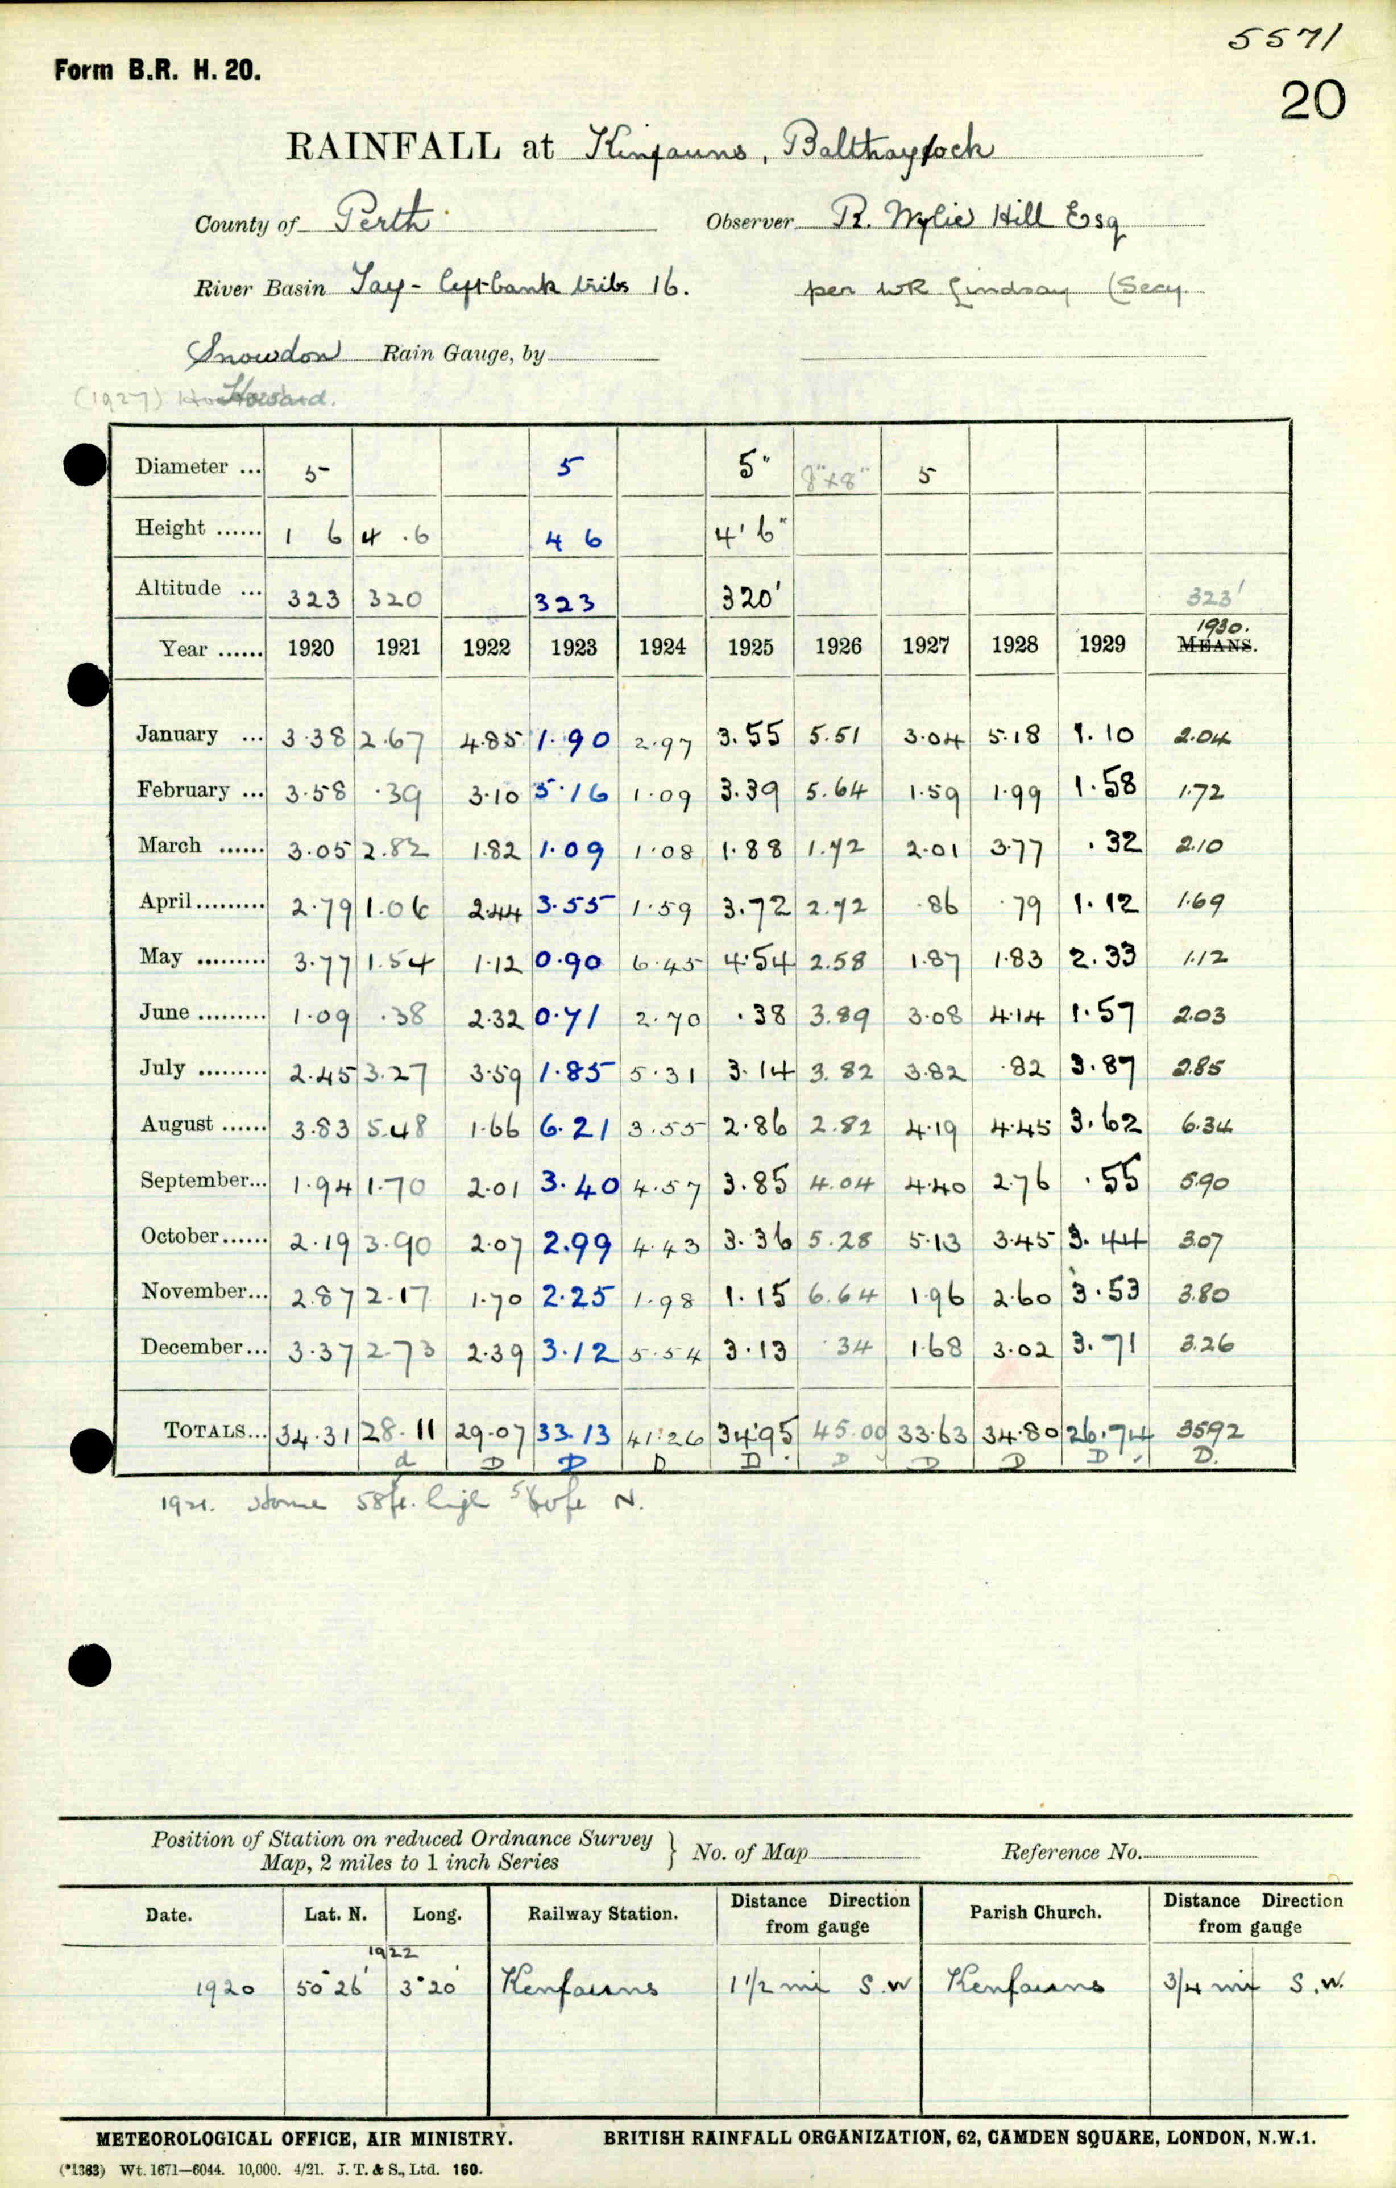 5571
Form B.R. H. 20.
20
RAINFALL at Kinfauns, Balthayock
County of Perth Observer R. Wylie Hill Esq
River Basin Tay - left bank tribs 16. per WR Lindsay (Secy
Snowdon Rain Gauge, by
(1927) Howard.
Diameter ... 5 5 5" 8"x8" 5
Height ...... 1 6 4 .6 4 6 4' 6"
Altitude ... 323 320 323 320' 323'
Year ...... 1920 1921 1922 1923 1924 1925 1926 1927 1928 1929 MEANS. 1930.
January ... 3.38 2.67 4.85 1.90 2.97 3.55 5.51 3.04 5.18 1.10 2.04
February ... 3.58 .39 3.10 5.16 1.09 3.39 5.64 1.59 1.99 1.58 1.72
March ...... 3.05 2.82 1.82 1.09 1.08 1.88 1.72 2.01 3.77 .32 2.10
April......... 2.79 1.06 2.44 3.55 1.59 3.72 2.72 .86 .79 1.12 1.69
May ......... 3.77 1.54 1.12 0.90 6.45 4.54 2.58 1.87 1.83 2.33 1.12
June ......... 1.09 .38 2.32 0.71 2.70 .38 3.89 3.08 4.14 1.57 2.03
July ......... 2.45 3.27 3.59 1.85 5.31 3.14 3.82 3.82 .82 3.87 2.85
August ...... 3.83 5.48 1.66 6.21 3.55 2.86 2.82 4.19 4.45 3.62 6.34
September... 1.94 1.70 2.01 3.40 4.57 3.85 4.04 4.40 2.76 .55 5.90
October...... 2.19 3.90 2.07 2.99 4.43 3.36 5.28 5.13 3.45 3.44 3.07
November... 2.87 2.17 1.70 2.25 1.98 1.15 6.64 1.96 2.60 3.53 3.80
December... 3.37 2.73 2.39 3.12 5.54 3.13 .34 1.68 3.02 3.71 3.26
TOTALS... 34.31 28.11 29.07 33.13 41.26 34.95 45.00 33.63 34.80 26.74 35.92
d D D D D D D D D D.
1921. 58ft. high N.
Position of Station on reduced Ordnance Survey
Map, 2 miles to 1 inch Series } No. of Map Reference No.
Date. Lat. N. Long. Railway Station. Distance Direction from gauge Parish Church. Distance Direction from gauge
1922
1920 50°26' 3°20' Kenfauns 1 1/2 mi S.W Kenfauns 3/4 mi S.W.
METEOROLOGICAL OFFICE, AIR MINISTRY. BRITISH RAINFALL ORGANIZATION, 62, CAMDEN SQUARE, LONDON, N.W.1.
(*1363) Wt. 1671—6044. 10,000. 4/21. J. T. & S., Ltd. 160.